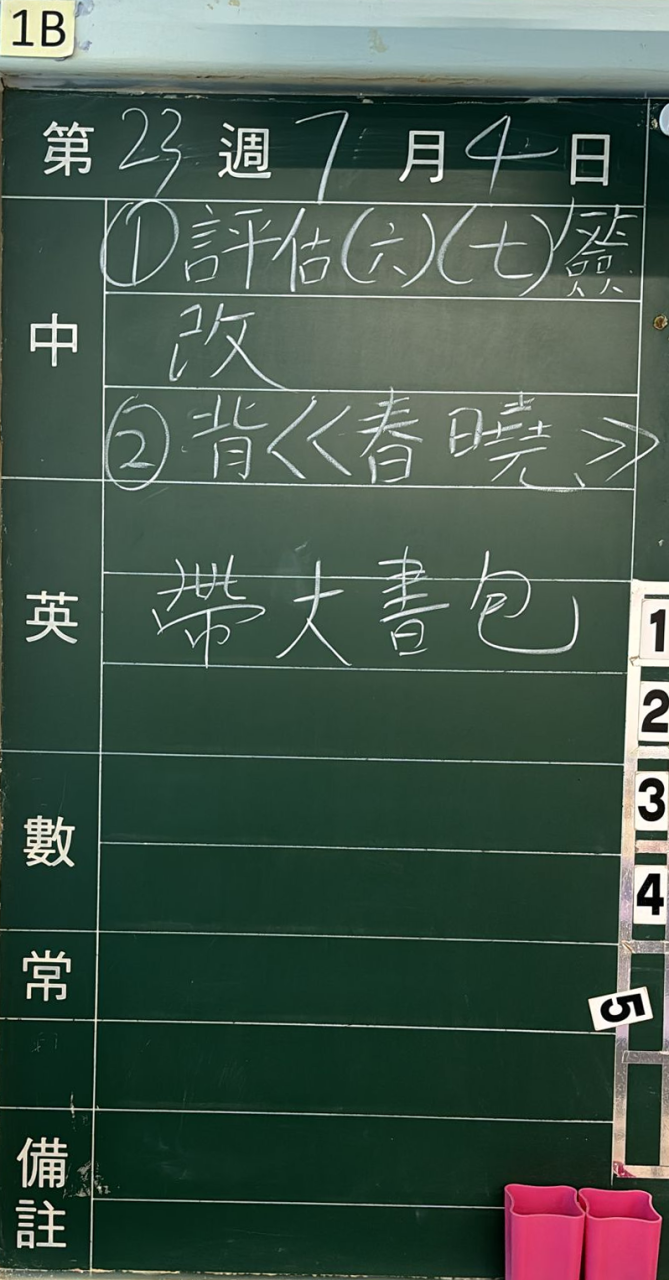 1B
第23週7月4日
中
①評估(六)(七)簽
改
②背《春曉》
英
帶大書包
1
2
3
數
4
常
5
備
註